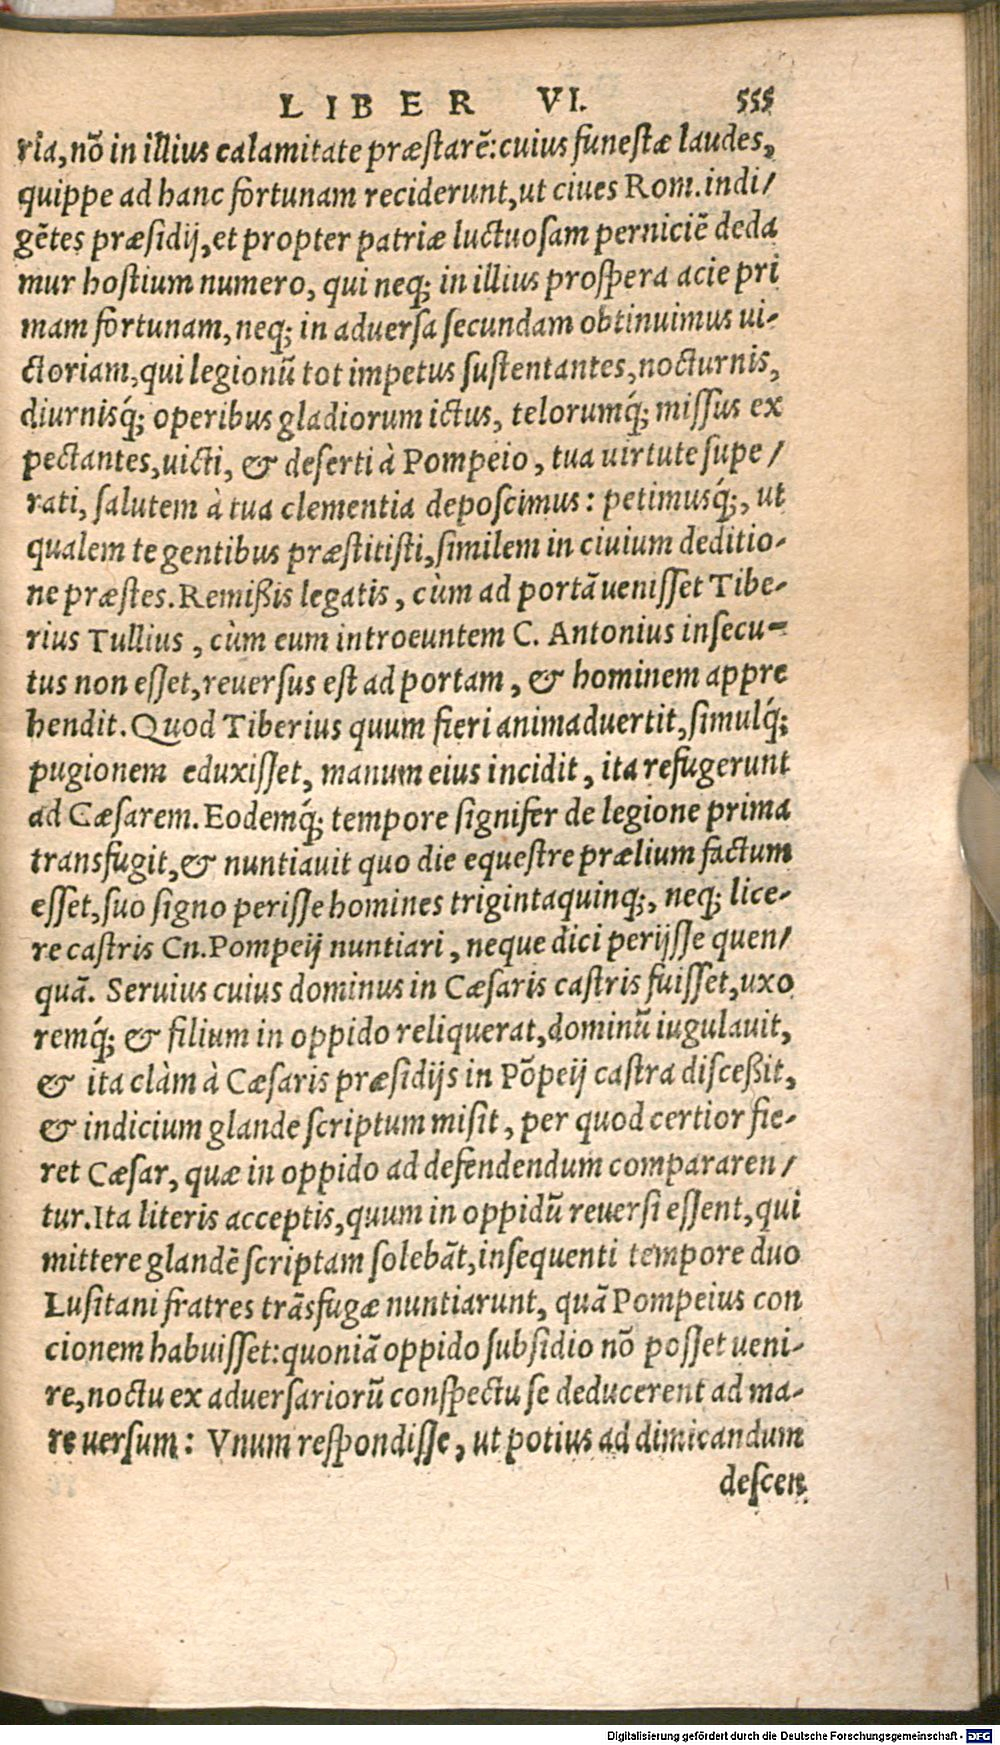 LIBER VI. 555
ria, nõ in illius calamitate præstarẽ: cuius funestæ laudes,
quippe ad hanc fortunam reciderunt, ut ciues Rom. indi/
gẽtes præsidij, et propter patriæ luctuosam perniciẽ deda
mur hostium numero, qui neq; in illius prospera acie pri
mam fortunam, neq; in aduersa secundam obtinuimus ui-
ctoriam, qui legionũ tot impetus sustentantes, nocturnis,
diurnisq́; operibus gladiorum ictus, telorumq́; missus ex
pectantes, uicti, & deserti à Pompeio, tua uirtute supe/
rati, salutem à tua clementia deposcimus: petimusq́;, ut
qualem te gentibus præstitisti, similem in ciuium deditio-
ne præstes. Remißis legatis, cùm ad portã uenisset Tibe-
rius Tullius, cùm eum introeuntem C. Antonius insecu-
tus non esset, reuersus est ad portam, & hominem appre
hendit. Quod Tiberius quum fieri animaduertit, simulq́;
pugionem eduxisset, manum eius incidit, ita refugerunt
ad Cæsarem. Eodemq́; tempore signifer de legione prima
transfugit, & nuntiauit quo die equestre prælium factum
esset, suo signo perisse homines trigintaquinq;, neq; lice-
re castris Cn. Pompeij nuntiari, neque dici perijsse quen/
quã. Seruius cuius dominus in Cæsaris castris fuisset, uxo
remq́; & filium in oppido reliquerat, dominũ iugulauit,
& ita clàm à Cæsaris præsidijs in Põpeij castra disceßit,
& indicium glande scriptum misit, per quod certior fie-
ret Cæsar, quæ in oppido ad defendendum compararen/
tur. Ita literis acceptis, quum in oppidũ reuersi essent, qui
mittere glandẽ scriptam solebãt, insequenti tempore duo
Lusitani fratres trãsfugæ nuntiarunt, quã Pompeius con
cionem habuisset: quoniã oppido subsidio nõ posset ueni-
re, noctu ex aduersariorũ conspectu se deducerent ad ma-
re uersum: Vnum respondisse, ut potius ad dimicandum
descen
Digitalisierung gefördert durch die Deutsche Forschungsgemeinschaft - DFG